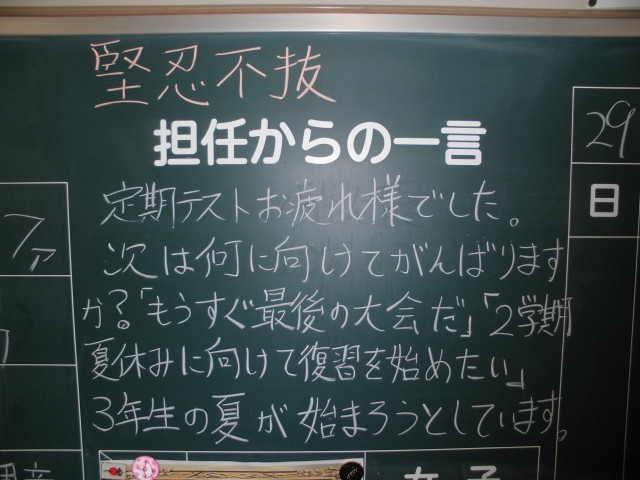 堅忍不抜
担任からの一言
定期テストお疲れ様でした。
次は何に向けてがんばります
か?「もうすぐ最後の大会だ」「2学期
夏休みに向けて復習を始めたい」
3年生の夏が始まろうとしています。
29
日
女子